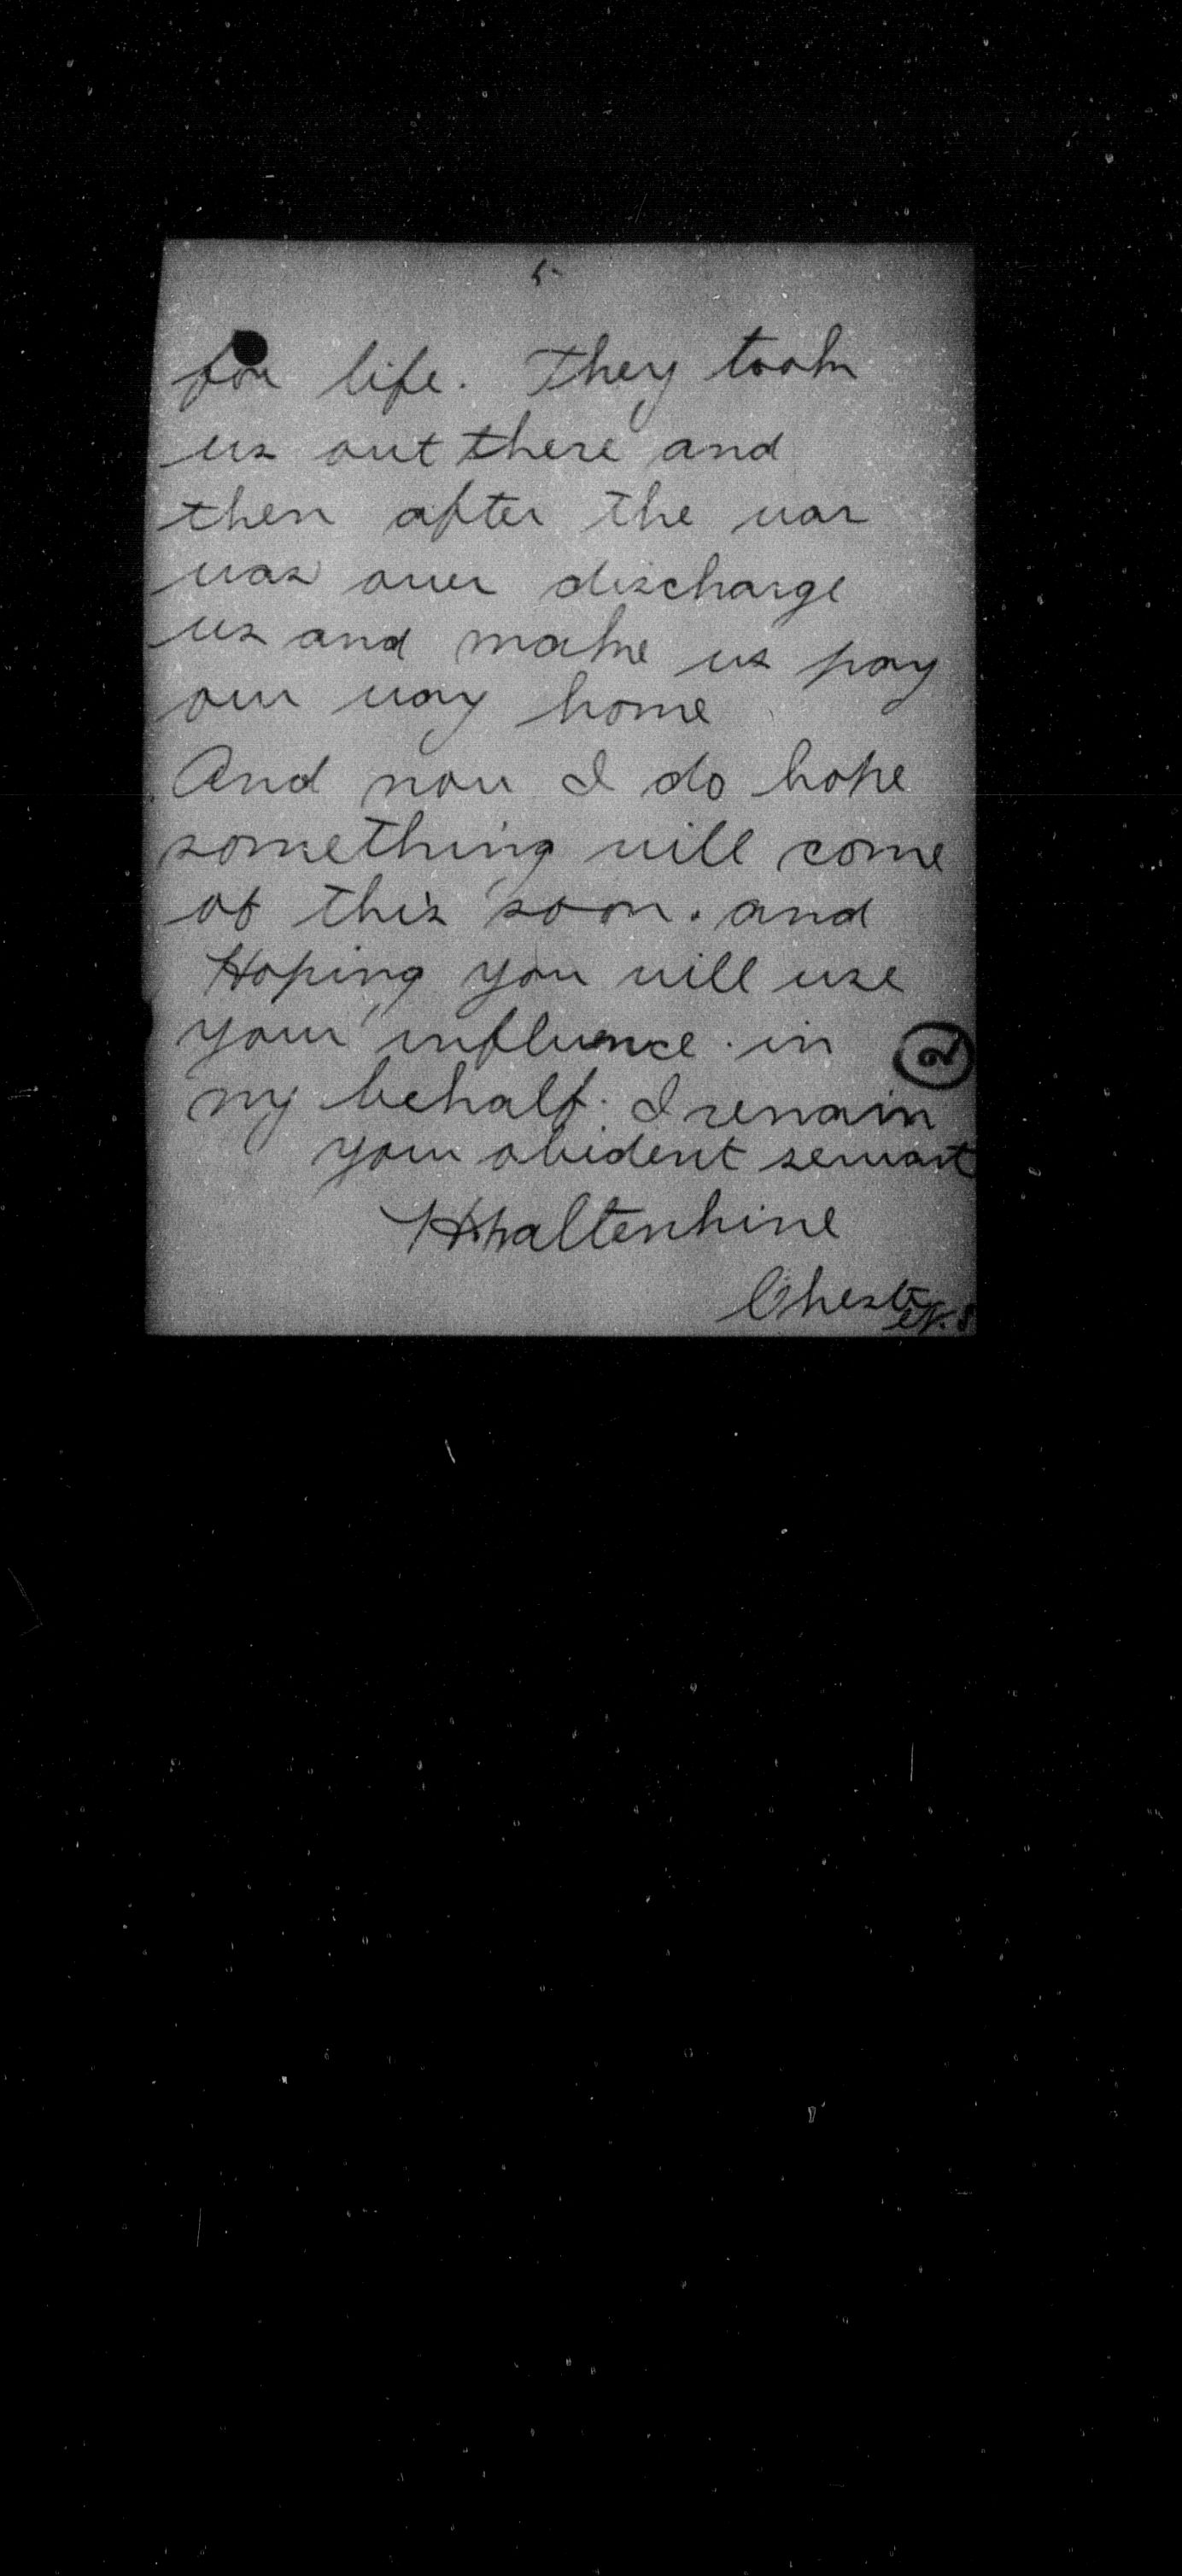 5
for life. They took
us out there and
then after the war
was over discharge
us and make us pay
our way home
And now I do hope
something will come
of this soon. and
Hoping you will use
your influence. in
my behalf. I remain
your obident servant
Chester N.S